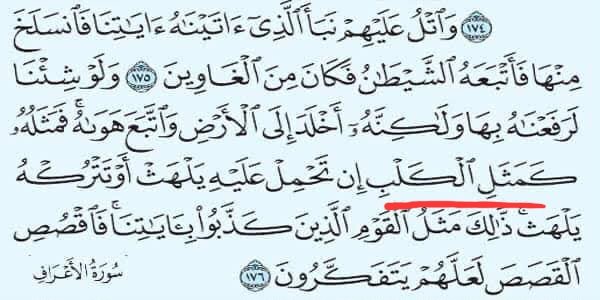 ١٧٤ وَٱتۡلُ عَلَيۡهِمۡ نَبَأَ ٱلَّذِيٓ ءَاتَيۡنَٰهُ ءَايَٰتِنَا فَٱنسَلَخَ
مِنۡهَا فَأَتۡبَعَهُ ٱلشَّيۡطَٰنُ فَكَانَ مِنَ ٱلۡغَاوِينَ ١٧٥ وَلَوۡ شِئۡنَا
لَرَفَعۡنَٰهُ بِهَا وَلَٰكِنَّهُۥٓ أَخۡلَدَ إِلَى ٱلۡأَرۡضِ وَٱتَّبَعَ هَوَىٰهُۚ فَمَثَلُهُۥ
كَمَثَلِ ٱلۡكَلۡبِ إِن تَحۡمِلۡ عَلَيۡهِ يَلۡهَثۡ أَوۡ تَتۡرُكۡهُ
يَلۡهَثۚ ذَّٰلِكَ مَثَلُ ٱلۡقَوۡمِ ٱلَّذِينَ كَذَّبُواْ بِـَٔايَٰتِنَاۚ فَٱقۡصُصِ
ٱلۡقَصَصَ لَعَلَّهُمۡ يَتَفَكَّرُونَ ١٧٦ سُورَةُ الأَعْرَافِ